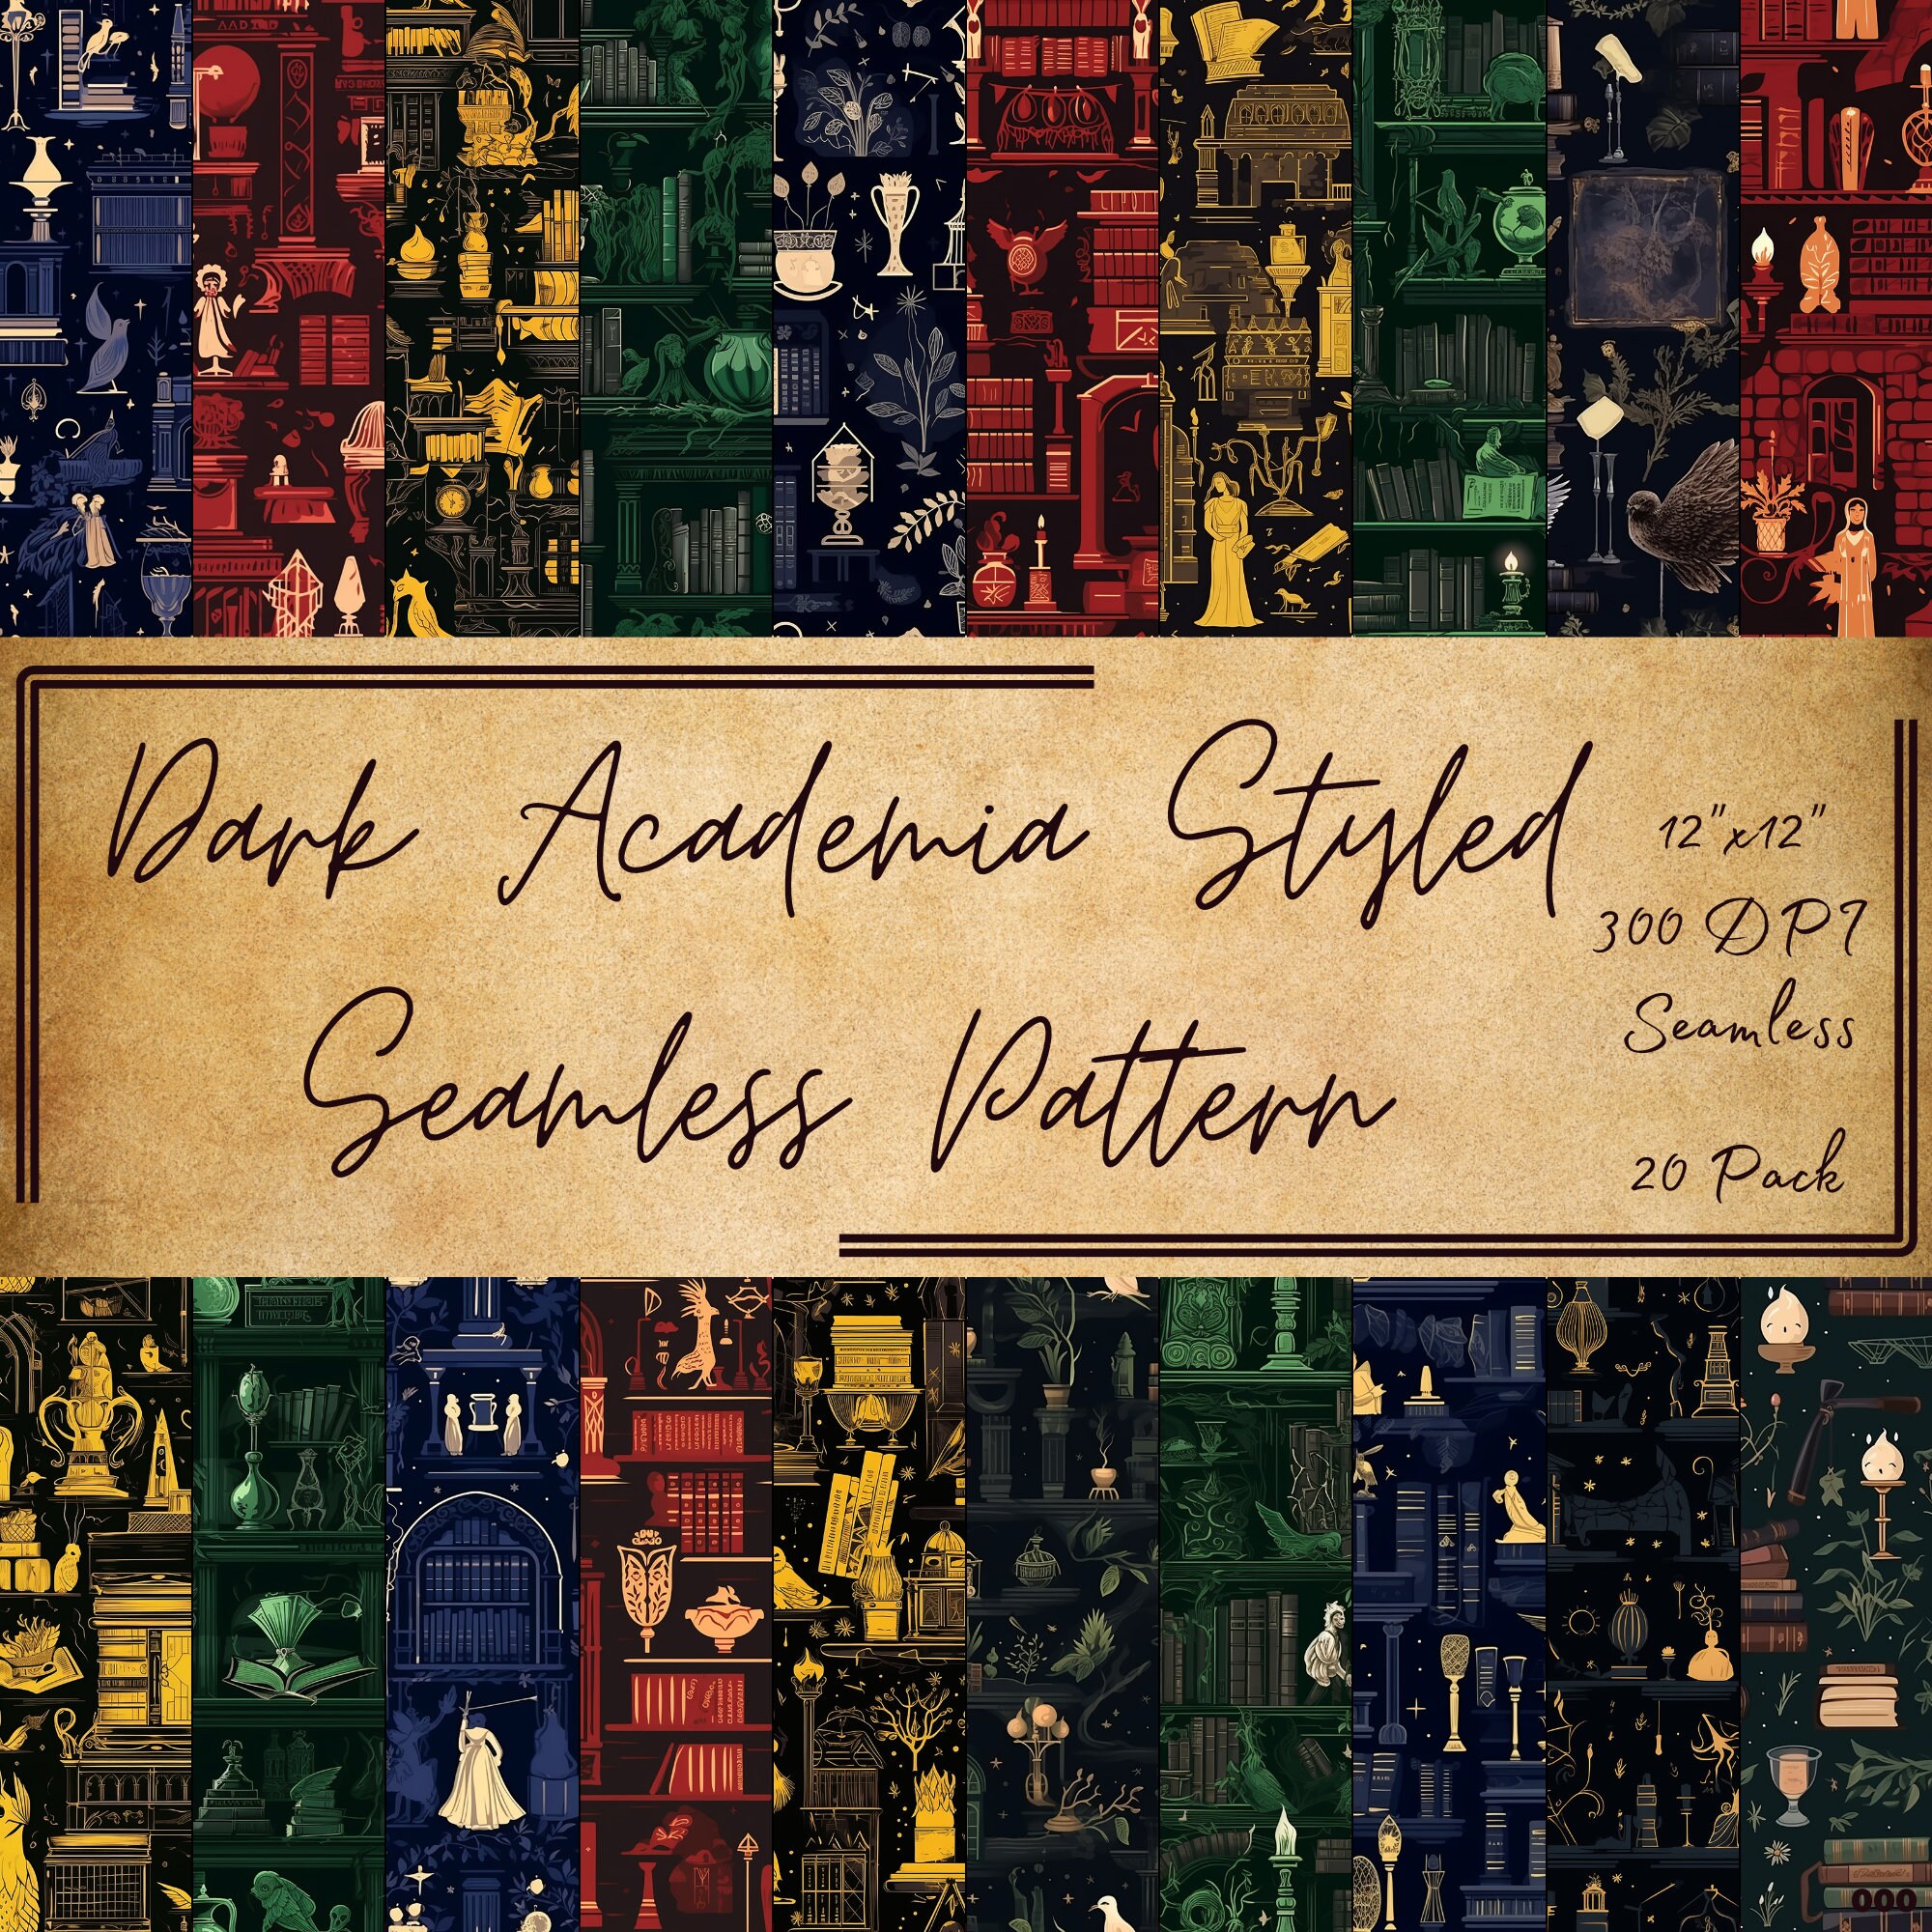 Dark Academia Styled
Seamless Pattern
12"x12"
300 DPI
Seamless
20 Pack